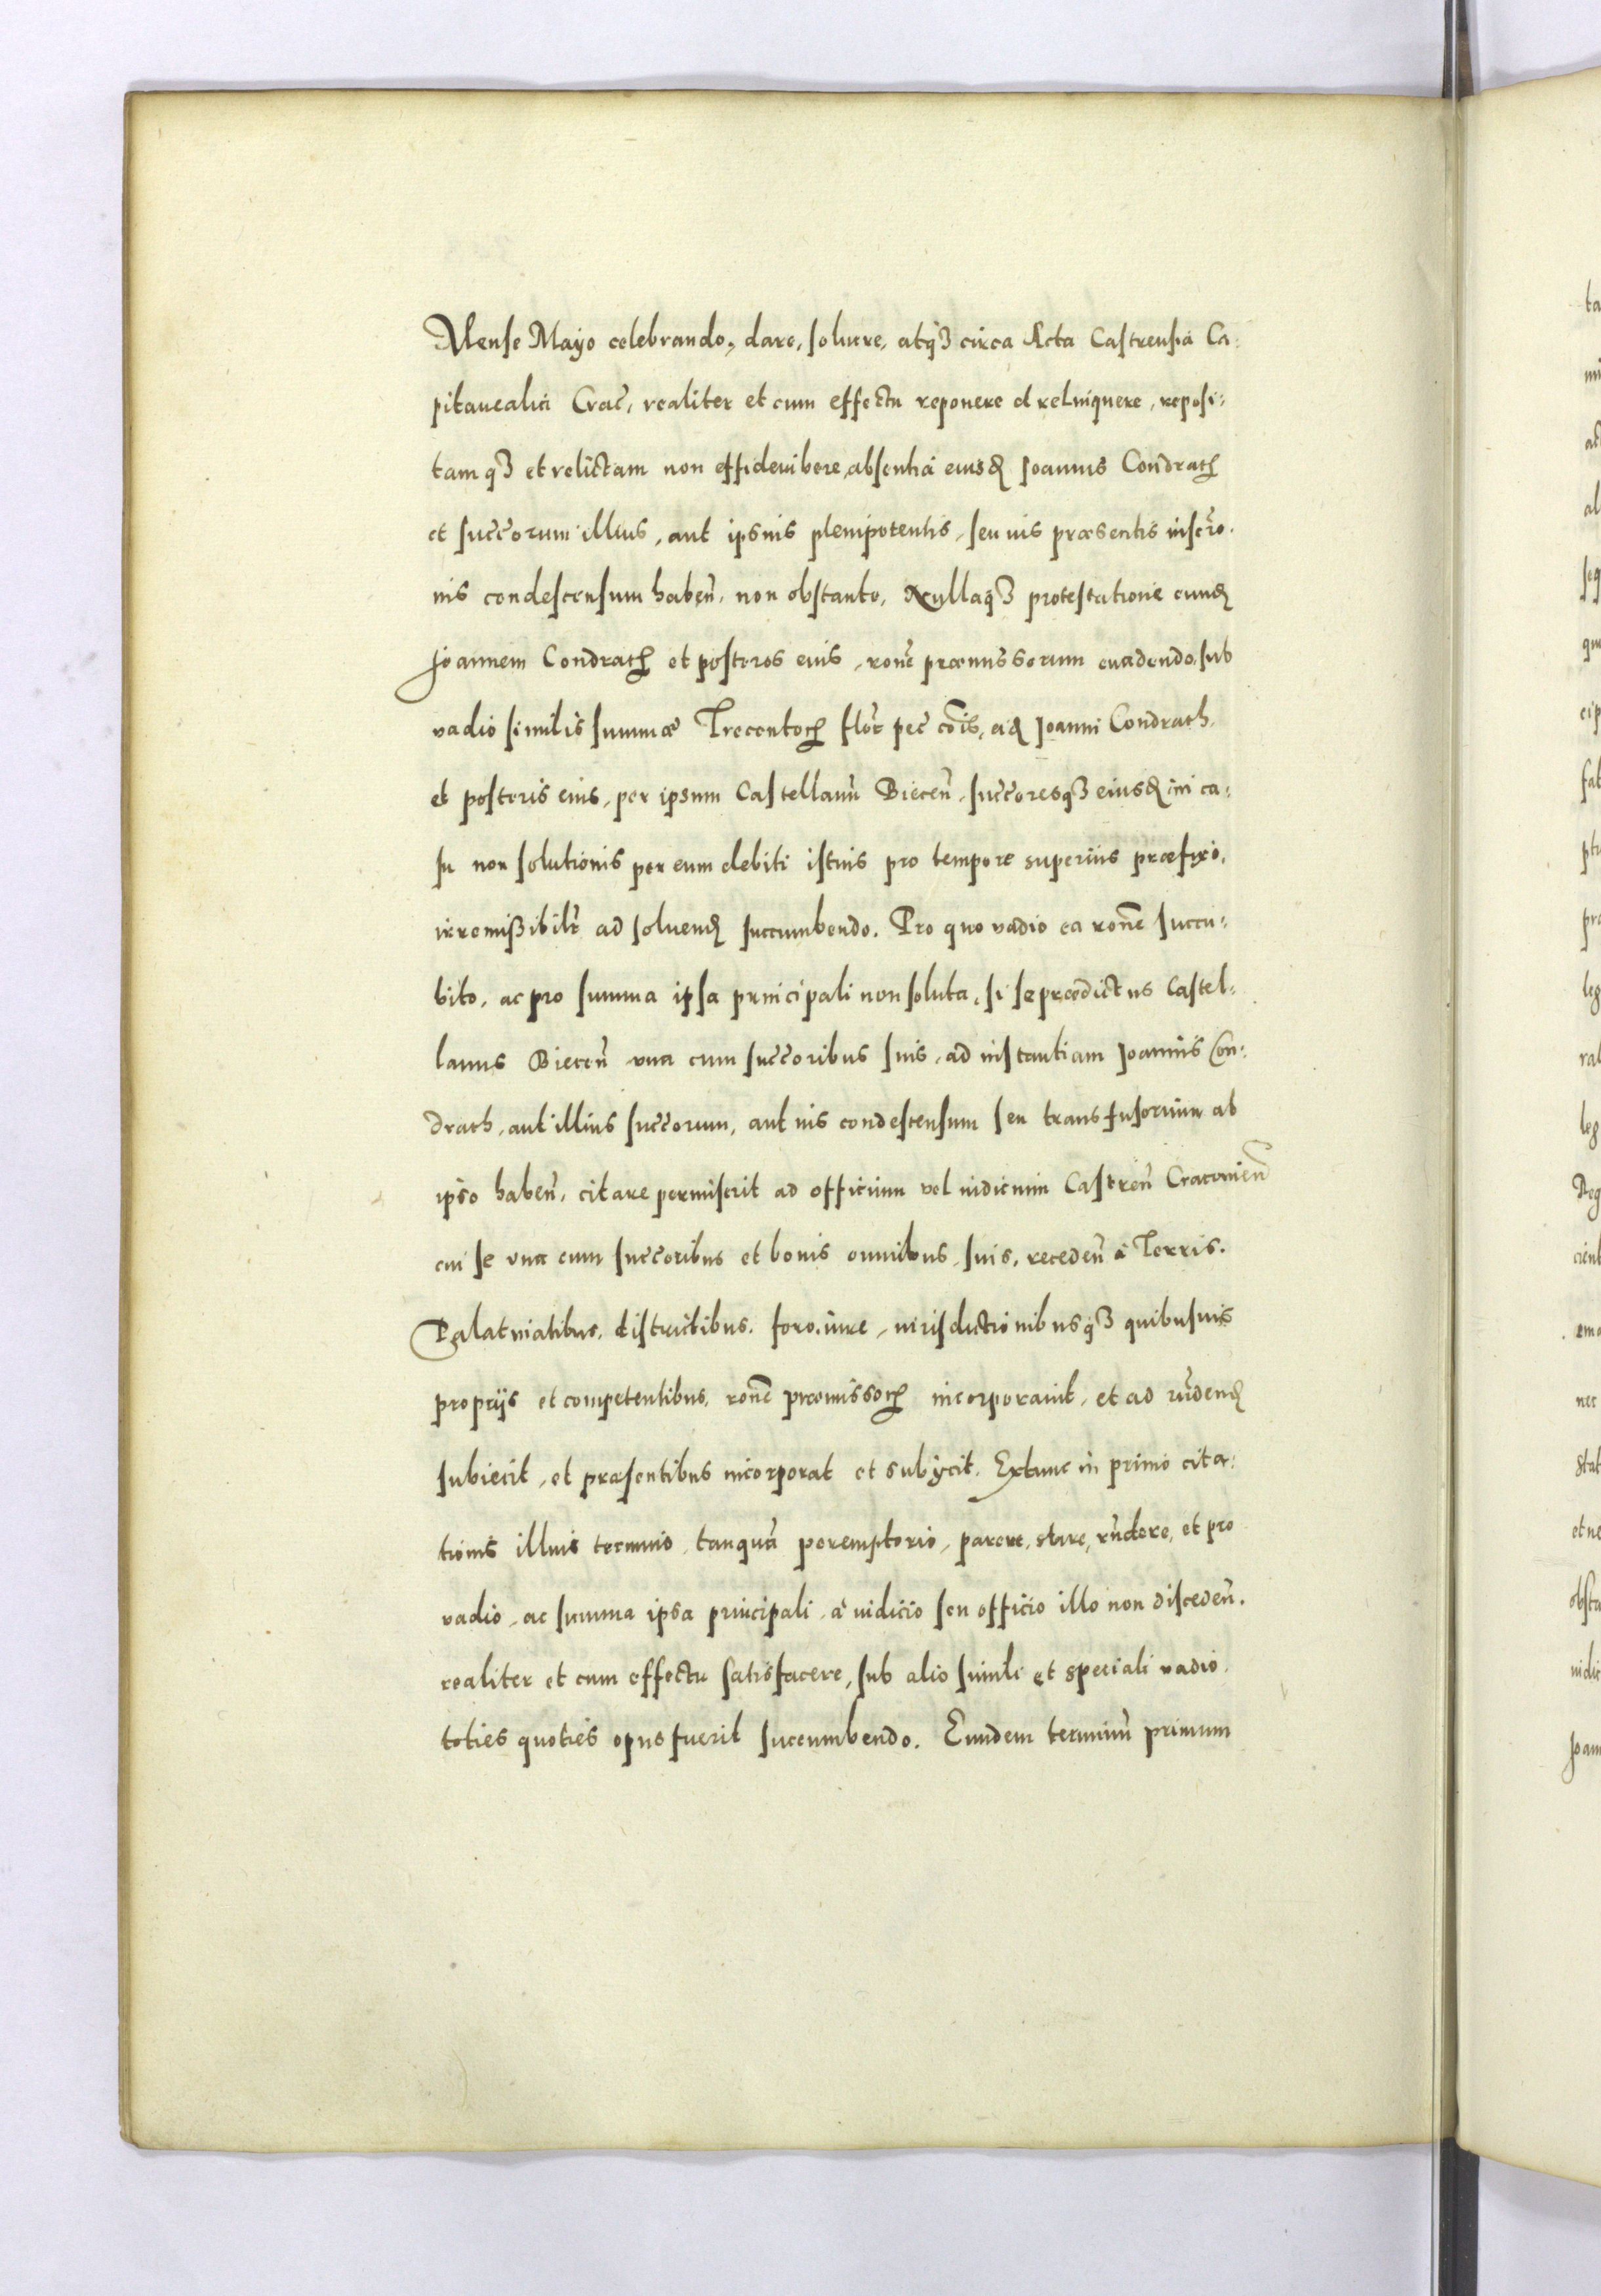 Mense Mayo celebrando, dare, soluere, atqȝ circa Acta Castrensia Ca:
pitanealia Crac̃, realiter et cum effectu reponere et relinquere, reposi:
tamqȝ et relictam non effidenibere, absentia eiusꝺ Joannis Condrath
et succ̃orum illius, aut ipsius plenipotentis, seu ius præsentis inscr̃o.
nis condescensum haben̄, non obstante, Nullaqȝ protestatione eunꝺ
Joannem Condrath et posteros eius, ron̄e præmissorum euadendo, sub
vadio similis summæ Trecentoꝝ flor̃ pec̃ co͠is, eiꝺ Joanni Condrath,
et posteris eius, per ipsum Castellanū Biecen̄, succ̃oresqȝ eiusꝺ in ca:
su non solutionis per eum debiti istius pro tempore superius præfixo,
irremißibilr̃ ad soluenꝺ succumbendo. Pro quo vadio ea ron̄e succu:
bito, ac pro summa ipsa principali non soluta, si se prædictus Castel:
lanus Biecen̄ vna cum succ̃oribus suis, ad instantiam Joannis Con:
drath, aut illius succ̃orum, aut ius condescensum seu transfusorium ab
ipso haben̄, citare permiserit ad officium vel iudicium Castren̄ Cracouien̄
cui se vna cum succ̃oribus et bonis omnibus suis, receden̄ à Terris.
Palatinatibus, districtibus, foro, iure, iurisdictionibusqȝ quibusuis
proprijs et competentibus, ron̄e præmissoꝝ incorporauit, et ad rn̄denꝺ
subiecit, et præsentibus incorporat et subijcit. Extunc in primo cita:
tionis illius termino, tanquā peremptorio, parere, stare, rn̄dere, et pro
vadio, ac summa ipsa principali, à iudicio seu officio illo non disceden̄.
realiter et cum effectu satisfacere, sub alio simili et speciali vadio.
toties quoties opus fuerit succumbendo. Eundem terminū primum